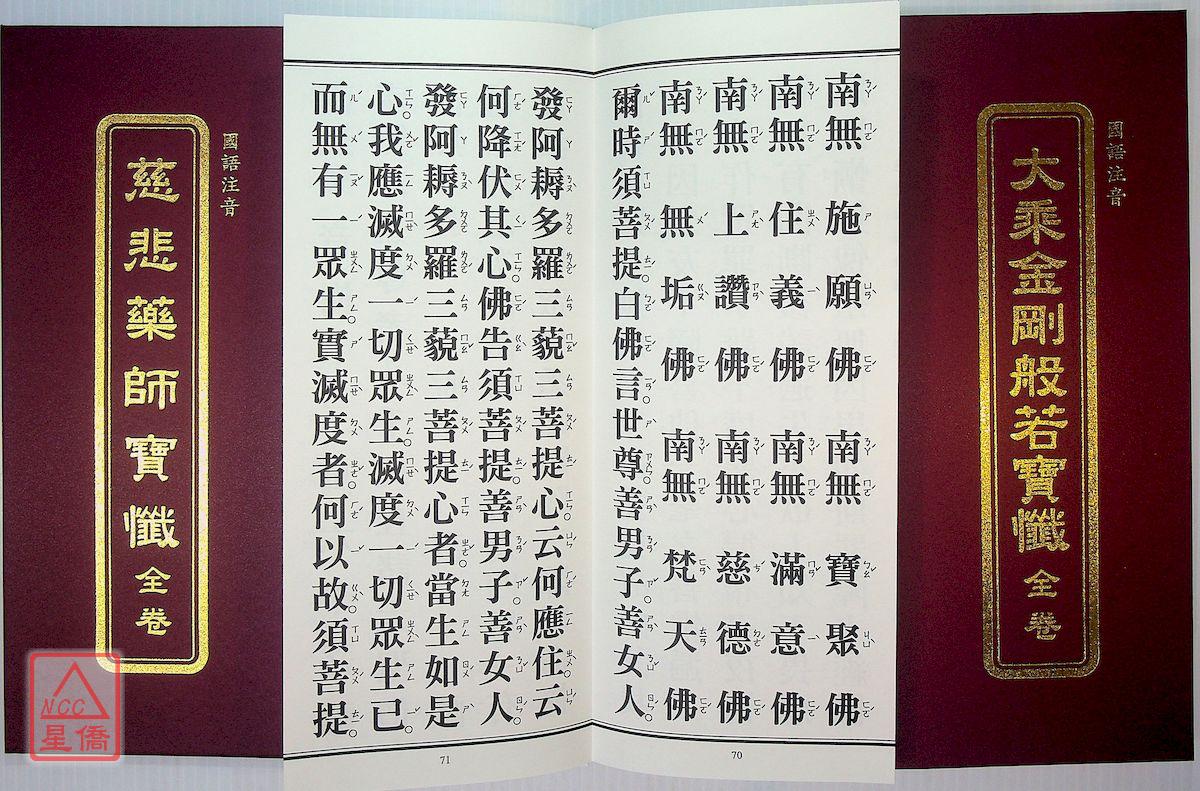 國語注音
大乘金剛般若寶懺 全卷
南無 施願佛 南無 寶聚佛
南無 住義佛 南無 滿意佛
南無 上讚佛 南無 慈德佛
南無 無垢佛 南無 梵天佛
爾時須菩提白佛言。世尊。善男子。善女人。
70
發阿耨多羅三藐三菩提心。云何應住。云
何降伏其心。佛告須菩提。善男子。善女人。
發阿耨多羅三藐三菩提心者。當生如是
心。我應滅度一切眾生。滅度一切眾生已。
而無有一眾生。實滅度者。何以故。須菩提。
71
國語注音
慈悲藥師寶懺 全卷
NCC
星僑